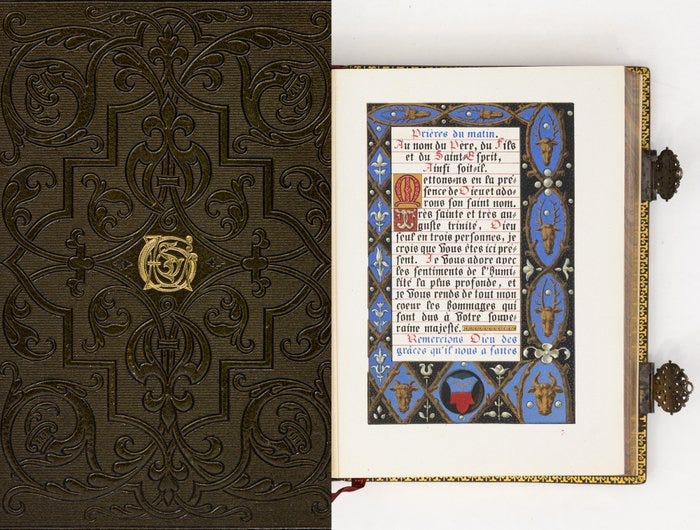 Prières du matin.
Au nom du Père, du Fils
et du Saint Esprit,
Ainsi soit-il.
Mettons-ns en la pré-
sence de Dieu et ado-
rons son saint nom.
Très sainte et très au-
guste trinité, Dieu
seul en trois personnes, je
crois que Vous êtes ici pré-
sent. Je Vous adore avec
les sentiments de l'humi-
lité la plus profonde, et
je Vous rends de tout mon
coeur les hommages qui
sont dus à Votre souve-
raine majesté.
Remercions Dieu des
grâces qu'il nous a faites